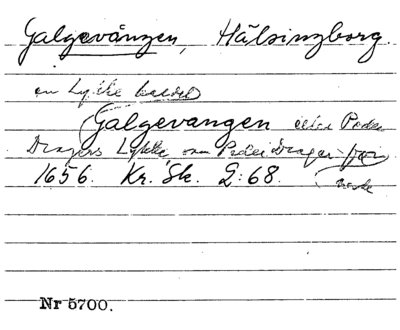 Galgevången, Hälsingborg.
en Lykke kaldes
Galgevangen eller Peder
Dragers Lykke, som Peder Drager før
1656. Kr. Sk. 2:68. havde
Nr 5700.